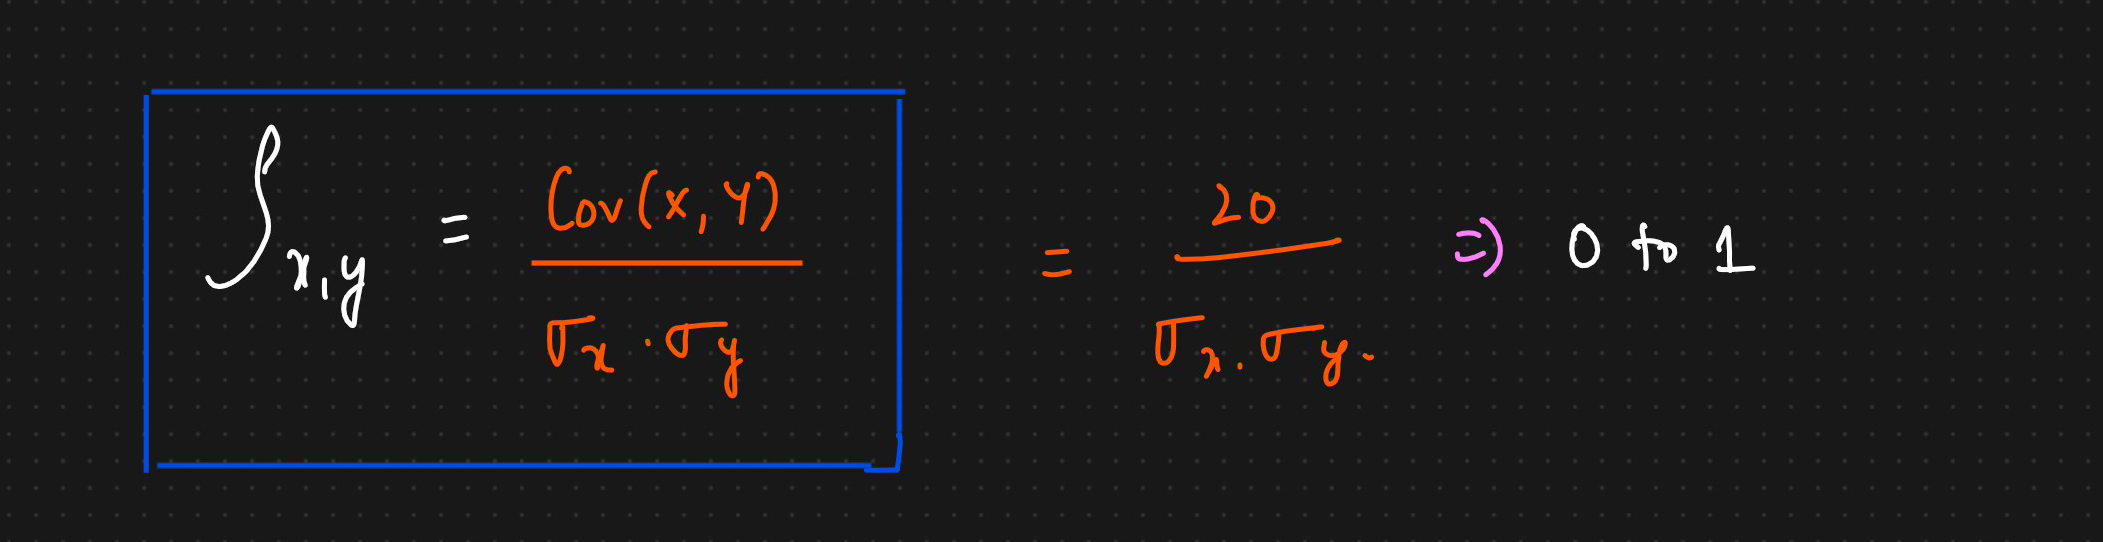 ρ_{x,y} = Cov(x, y) / σ_x · σ_y = 20 / σ_x . σ_y . ⇒ 0 to 1